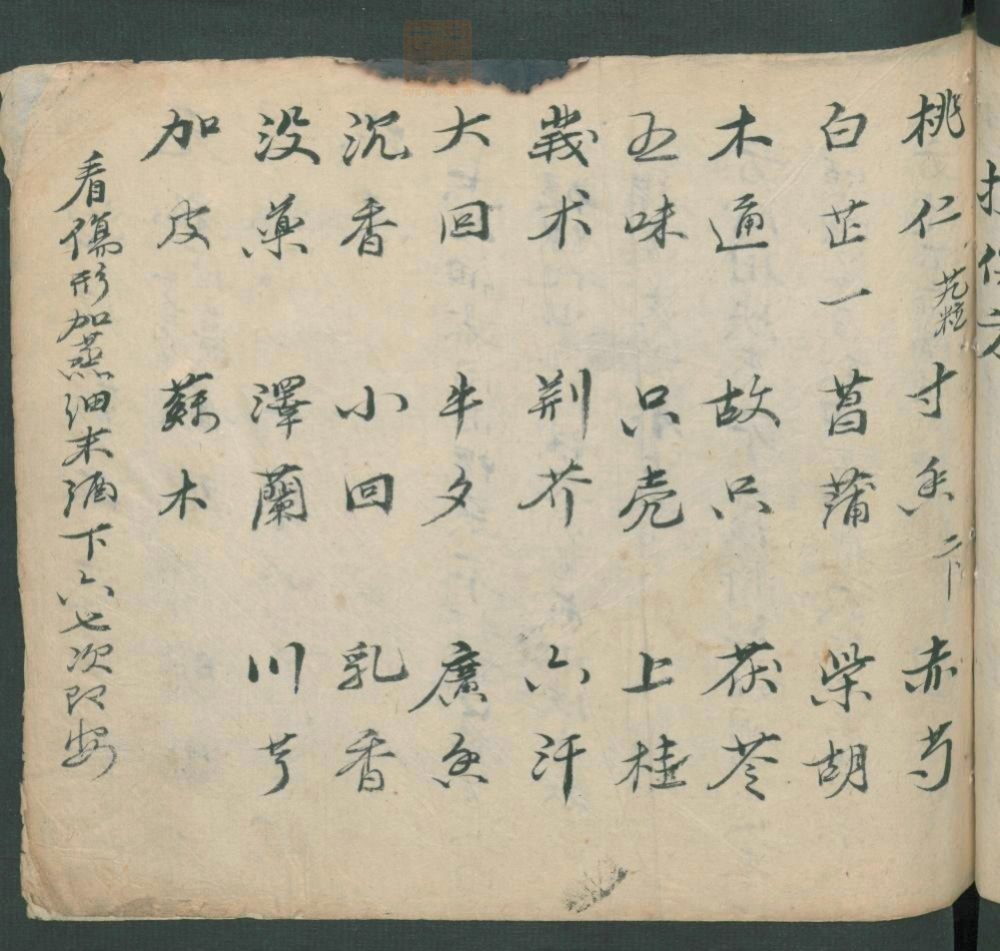 桃仁 寸香 赤芍
白芷一 菖蒲 柴胡
木通 故只 茯苓
五味 只壳 上桂
莪术 荆芥 六汗
大回 牛夕 廣香
沉香 小回 乳香
没藥 澤蘭 川芎
加皮 蘇木
看傷形加蒸细末酒下六七次即安